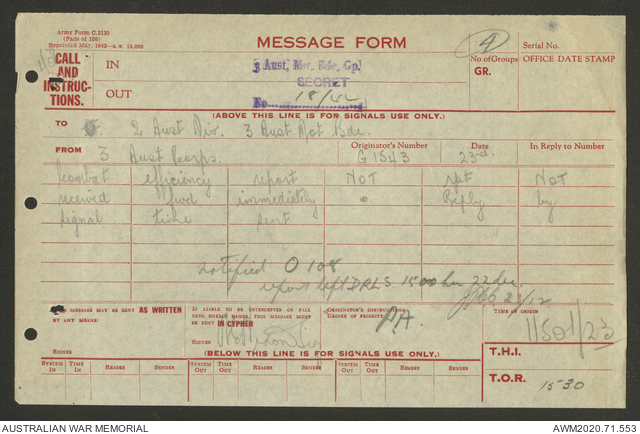 Army Form C.2130
(Pads of 100)
Reprinted May, 1942
MESSAGE FORM
4
Serial No.
CALL AND INSTRUC-TIONS.
IN
3 Aust. Mot. Bde. Gp.
SECRET
No. of Groups
GR.
OFFICE DATE STAMP
OUT
No. 18/42
(ABOVE THIS LINE IS FOR SIGNALS USE ONLY.)
TO 2 Aust Div. 3 Aust Mot Bde.
FROM 3 Aust Corps.
Originator's Number
G 1543
Date
23rd.
In Reply to Number
Combat efficiency report NOT rpt NOT
received fwd immediately Reply by
signal time sent
notified O 108
report left DRLS. 1500 hr 22 dec.
22/12
THIS MESSAGE MAY BE SENT AS WRITTEN
BY ANY MEANS.
IF LIABLE TO BE INTERCEPTED OR FALL
INTO ENEMY HANDS, THIS MESSAGE MUST
BE SENT IN CYPHER
ORIGINATOR'S INSTRUCTIONS
DEGREE OF PRIORITY
TIME OF ORIGIN
SIGNED
SIGNED
(BELOW THIS LINE IS FOR SIGNALS USE ONLY.)
T.H.I.
SYSTEM IN
TIME IN
READER
SENDER
SYSTEM OUT
TIME OUT
READER
SENDER
SYSTEM OUT
TIME OUT
READER
SENDER
T.O.R.
1530
AUSTRALIAN WAR MEMORIAL
AWM2020.71.553